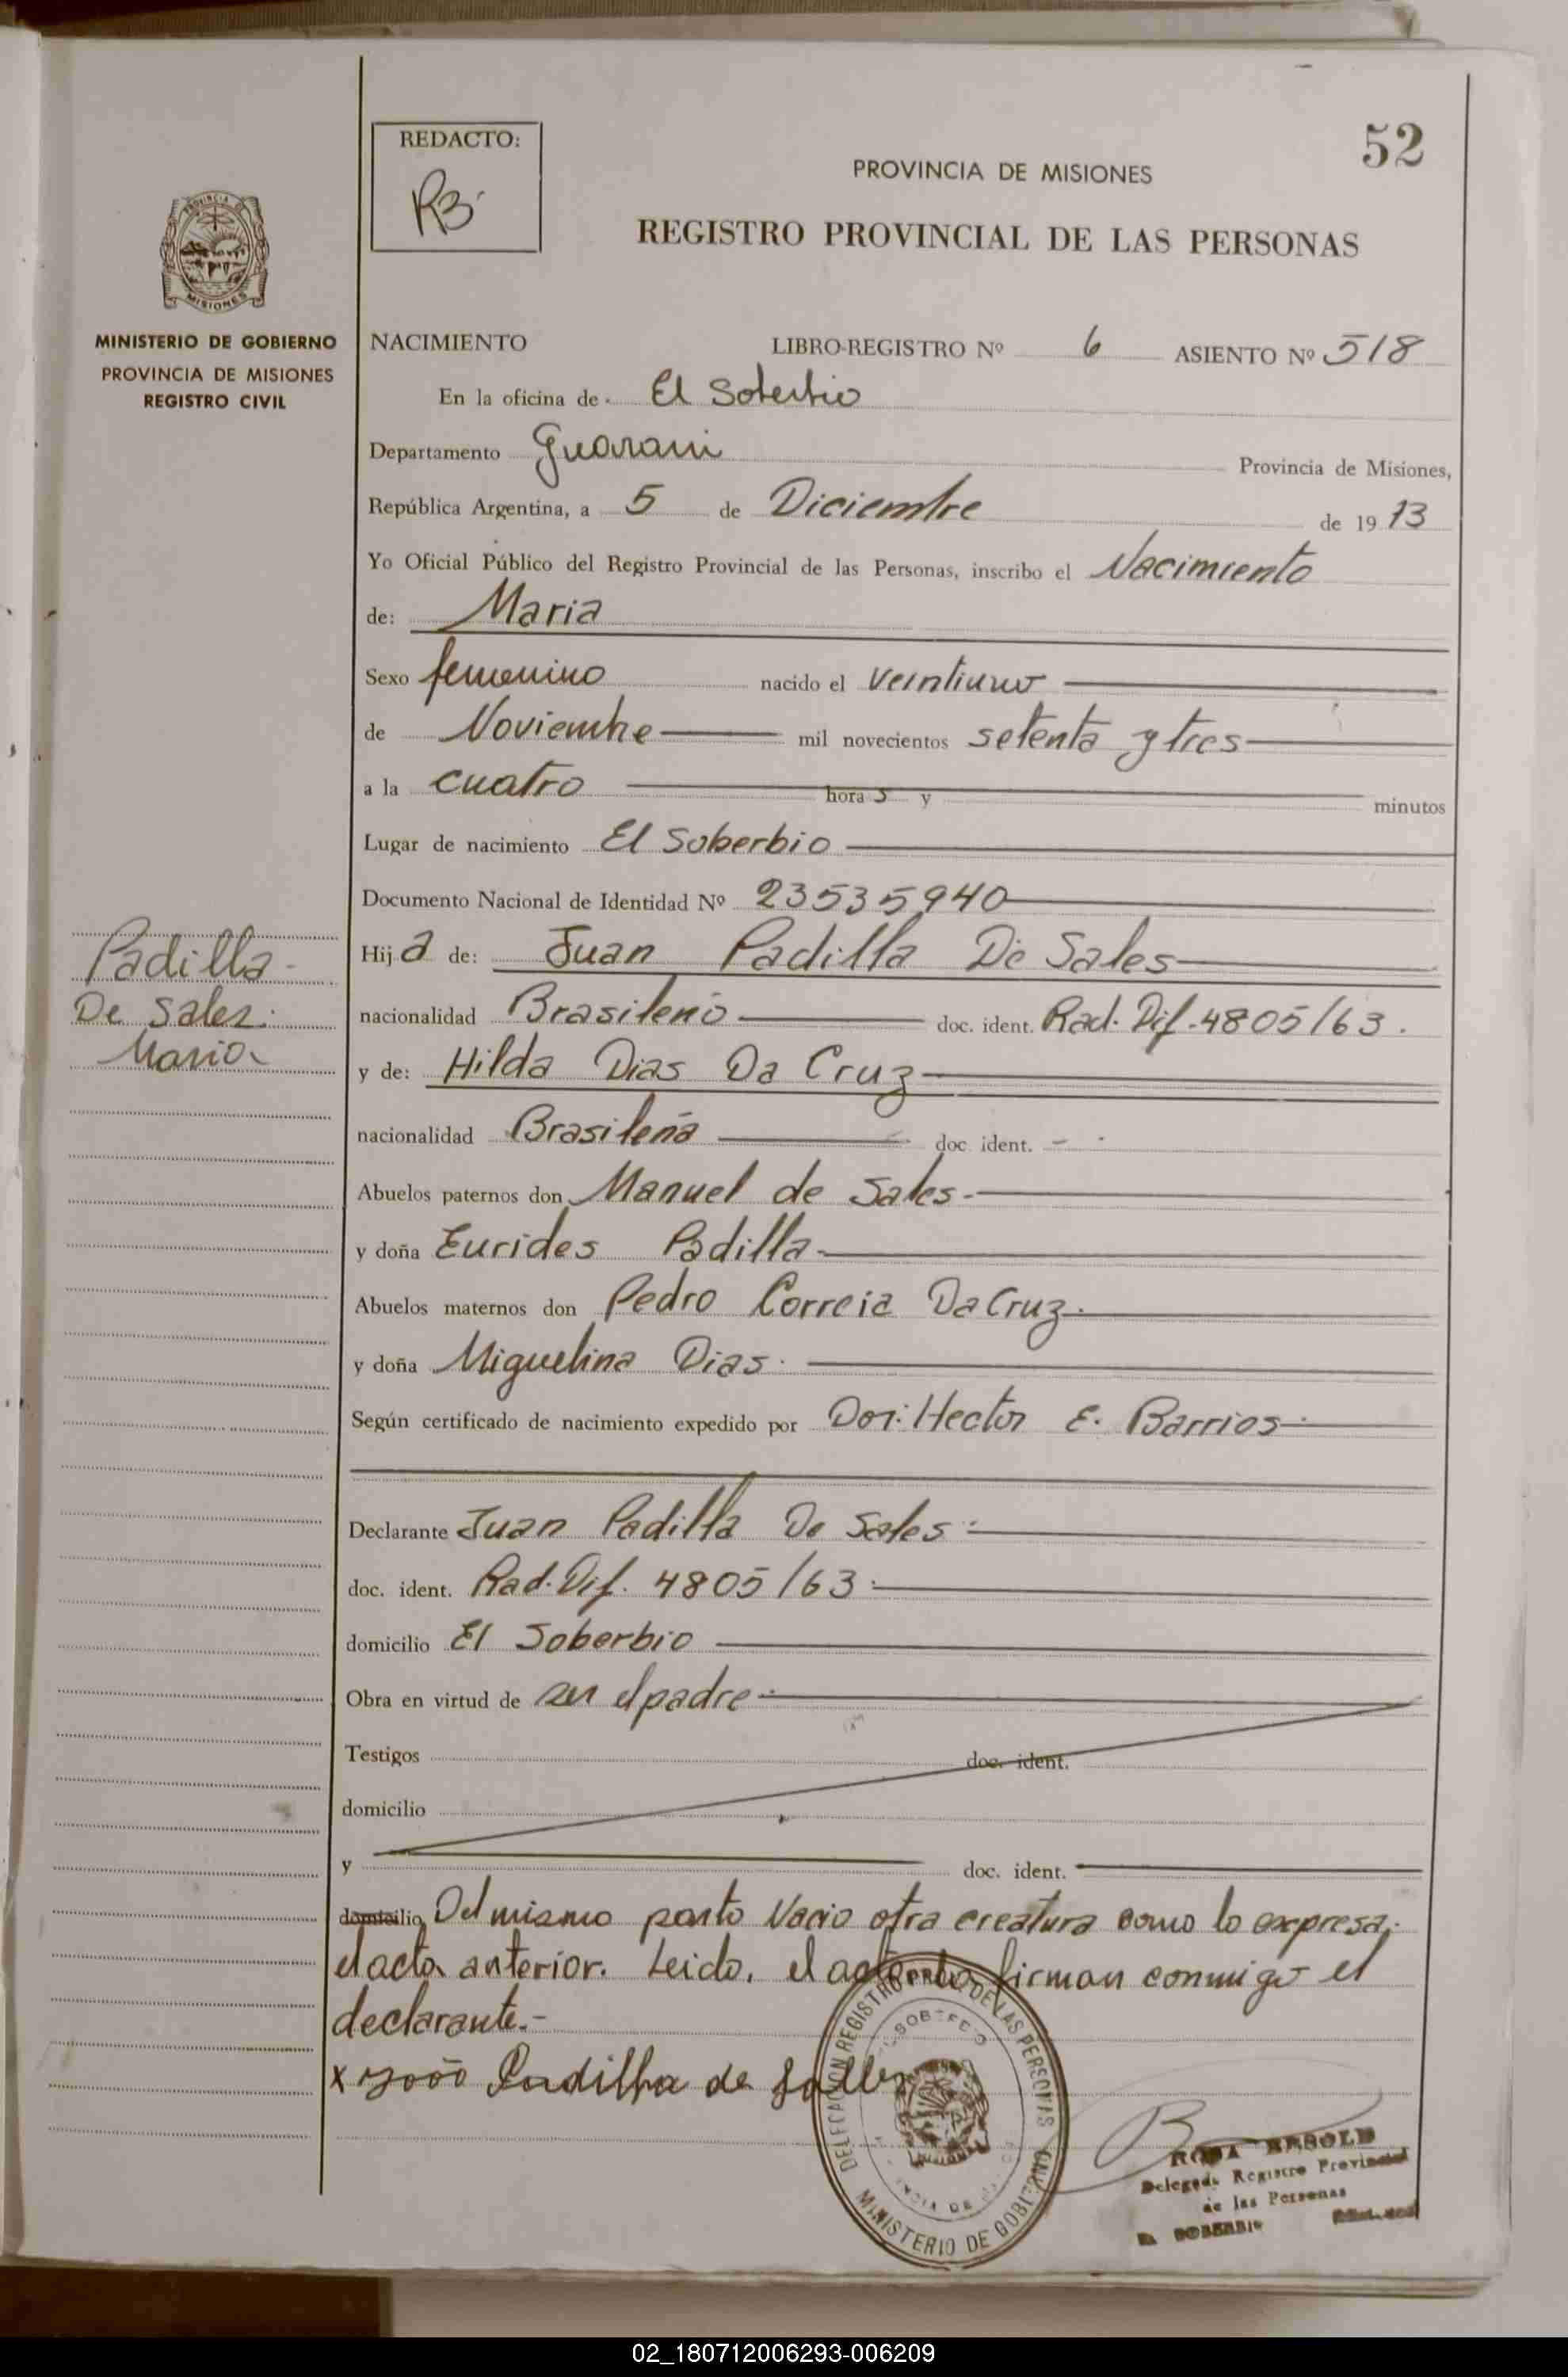 52
REDACTO:
RB
PROVINCIA DE MISIONES
REGISTRO PROVINCIAL DE LAS PERSONAS
PROVINCIA DE
MISIONES
MINISTERIO DE GOBIERNO
PROVINCIA DE MISIONES
REGISTRO CIVIL
NACIMIENTO LIBRO-REGISTRO Nº 6 ASIENTO Nº 518
En la oficina de El Soberbio
Departamento Guarani Provincia de Misiones,
República Argentina, a 5 de Diciembre de 19 73
Yo Oficial Público del Registro Provincial de las Personas, inscribo el Nacimiento
de: Maria
Sexo femenino nacido el veintiuno
de Noviembre mil novecientos setenta y tres
a la cuatro hora s y minutos
Lugar de nacimiento El Soberbio
Documento Nacional de Identidad Nº 23535940
Padilla
De Sales
Maria
Hij a de: Juan Padilla De Sales
nacionalidad Brasileño doc. ident. Rad. Dif. 4805/63.
y de: Hilda Dias Da Cruz
nacionalidad Brasileña doc. ident. -
Abuelos paternos don Manuel de Sales.-
y doña Eurides Padilla-
Abuelos maternos don Pedro Correia Da Cruz.
y doña Miguelina Dias.
Según certificado de nacimiento expedido por Hector E. Barrios
Declarante Juan Padilla De Sales
doc. ident. Rad. Dif. 4805/63
domicilio El Soberbio
Obra en virtud de ser el padre
Testigos doc. ident.
domicilio
y doc. ident.
domicilio Del mismo parto Nacio otra creatura como lo expresa
el acta anterior. Leido, el acta la firman conmigo el
declarante.-
x João Padilha de Salles
DELEGACION REGISTRO PROV. DE LAS PERSONAS
MINISTERIO DE GOBIERNO
ROSA
Delegada Registro Provincial
de las Personas
EL SOBERBIO
02_180712006293-006209